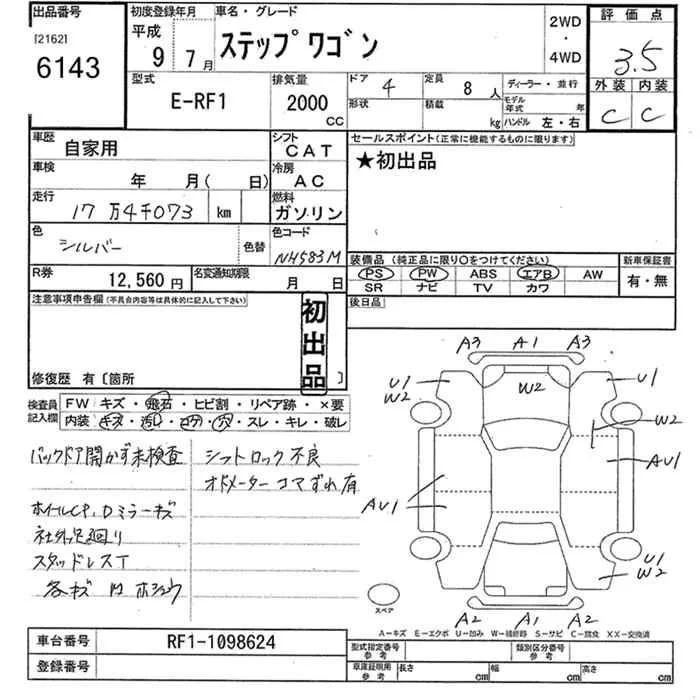 出品番号
[2162]
6143
初度登録年月
平成
9年 7月
車名・グレード
ステップワゴン
2WD
・
4WD
評価点
3.5
外装 内装
C C
型式
E-RF1
排気量
2000
CC
ドア 4
定員 8 人
ディーラー・並行
形状
積載 kg
モデル年式 年
ハンドル 左・右
車歴
自家用
シフト
CAT
車検
年 月( 日)
冷房
AC
走行
17万4千073 km
燃料
ガソリン
色
シルバー
色替
色コード
NH583M
R券
12,560円
名変通知期限
月 日
セールスポイント(正常に機能するものに限ります)
★初出品
装備品(純正品に限り○をつけてください)
PS PW ABS エアB AW
SR ナビ TV カワ
新車保証書
有・無
後日品
注意事項申告欄(不具合内容等は具体的に記入して下さい)
初出品
修復歴 有〔箇所 〕
検査員記入欄
FW キズ・飛石・ヒビ割・リペア跡・×要
内装 キズ・汚れ・コゲ・穴・スレ・キレ・破レ
バックドア開かず未検査
シフトロック不良
オドメーターコマずれ有
ホイールCP、Dミラーキズ
社外足廻り
スタッドレスT
各キズ 凹 ホシュウ
A3 A1 A3
U1
W2
W2
U1
W2
AU1
AU1
U1
W2
A2 A1 A2
スペア
A−キズ E−エクボ U−凹み W−補修跡 S−サビ C−腐食 XX−交換済
車台番号
RF1-1098624
登録番号
型式指定番号
参考
類別区分番号
参考
車庫証明用
参考
長さ cm
幅 cm
高さ cm